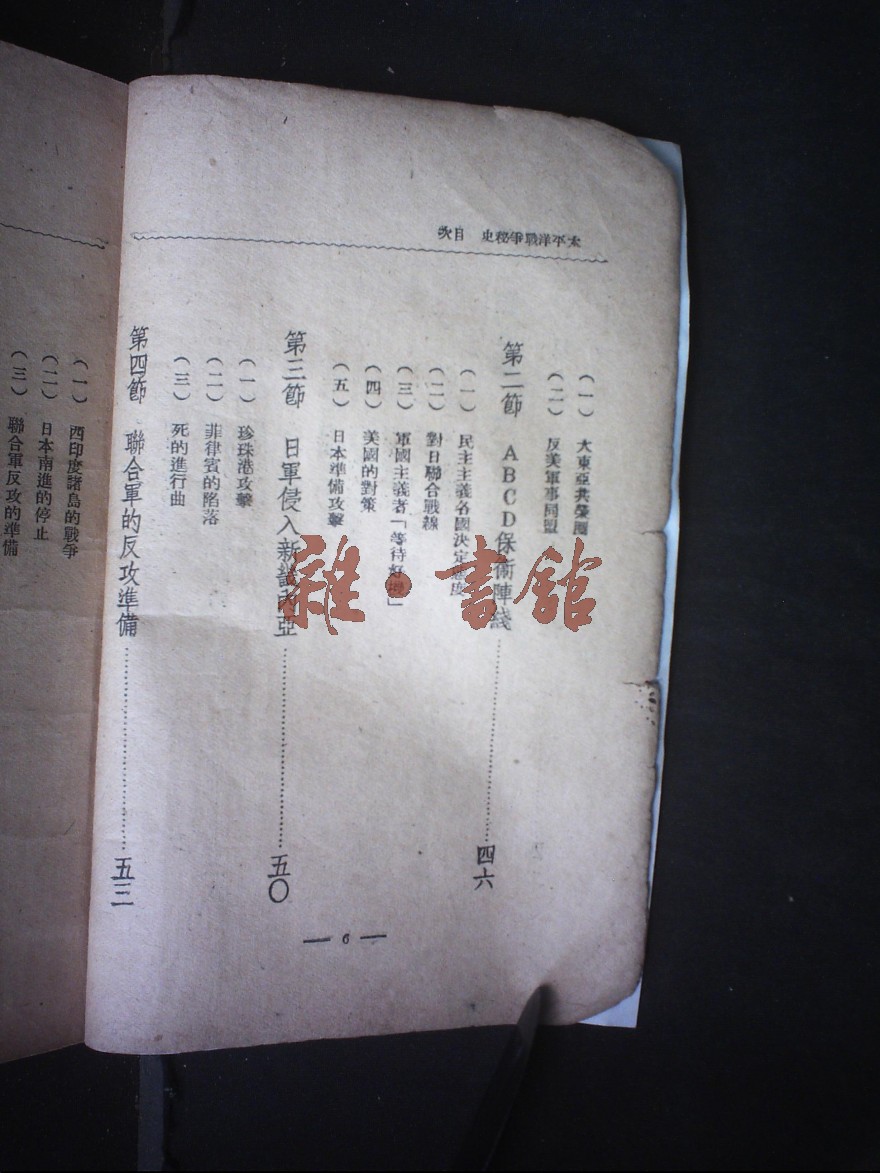 太平洋戰爭秘史 目次
(一) 大東亞共榮圈
(二) 反美軍事同盟
第二節 ABCD保衛陣綫 四六
(一) 民主主義各國決定態度
(二) 對日聯合戰線
(三) 軍國主義者「等待好機」
(四) 美國的對策
(五) 日本準備攻擊
第三節 日軍侵入新畿內亞 五〇
(一) 珍珠港攻擊
(二) 菲律賓的陷落
(三) 死的進行曲
第四節 聯合軍的反攻準備 五三
(一) 西印度諸島的戰爭
(二) 日本南進的停止
(三) 聯合軍反攻的準備
— 6 —
雜·書館